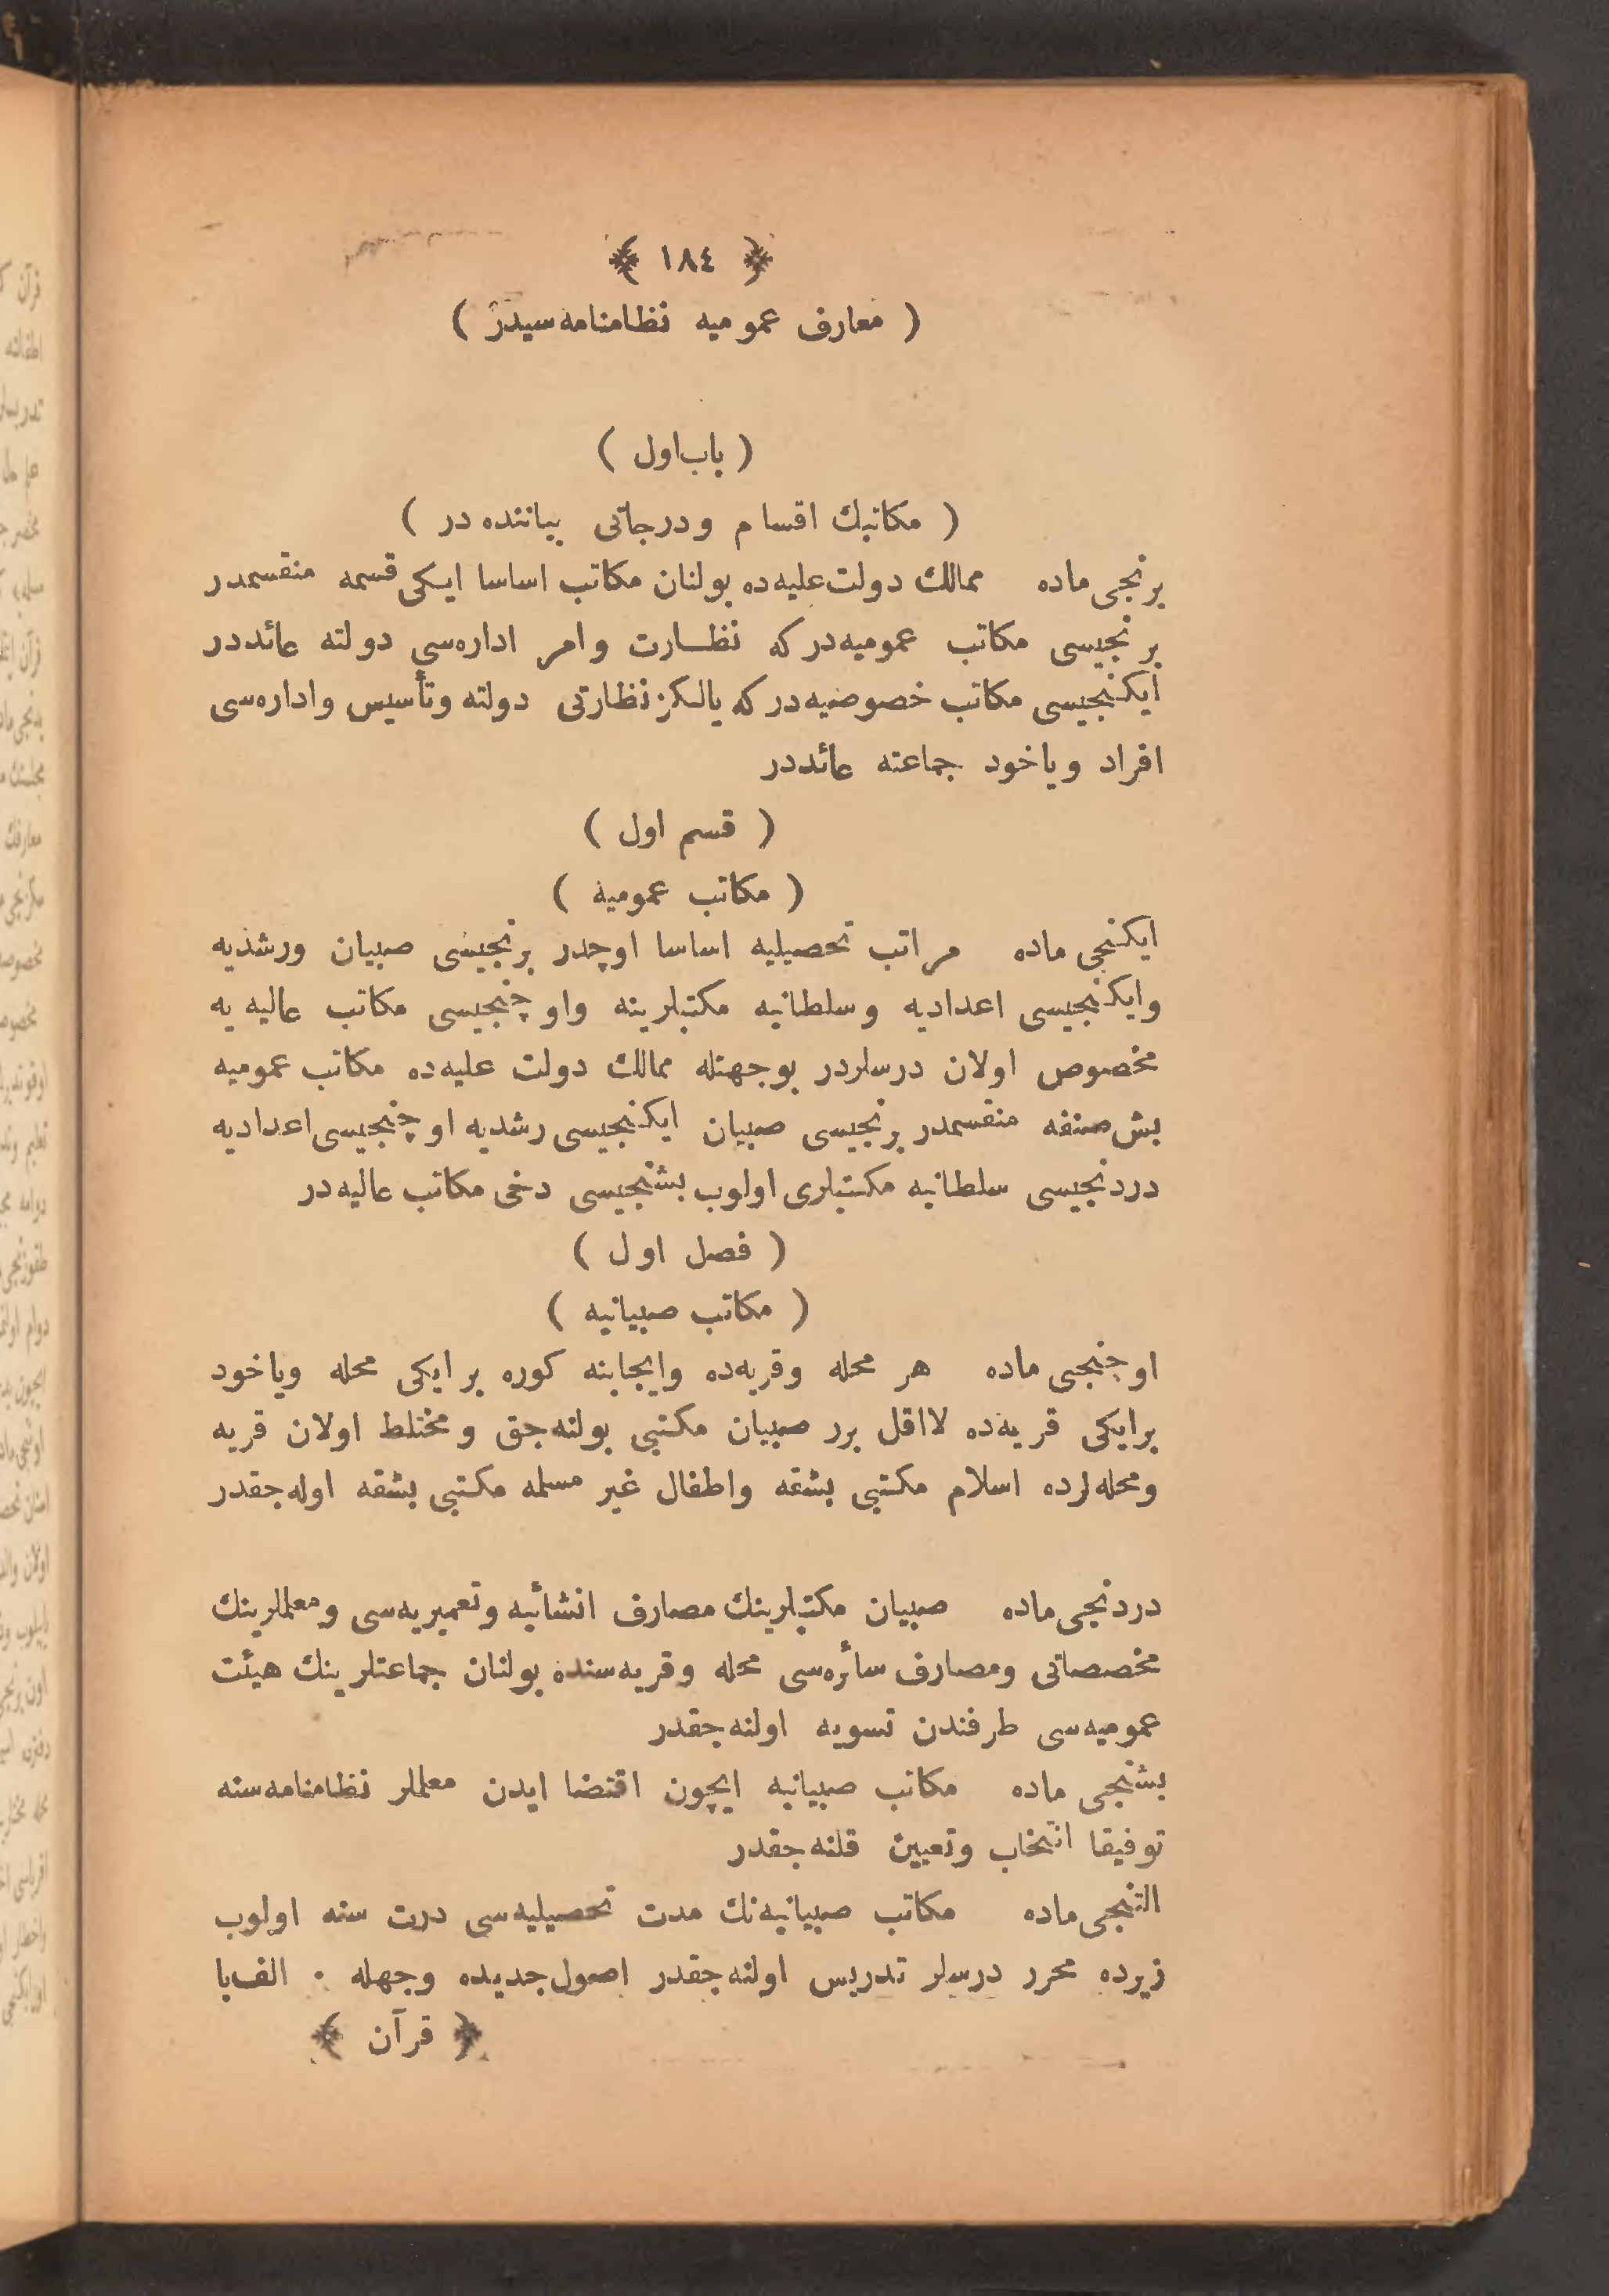 ﴿ ١٨٤ ﴾
( معارف عموميه نظامنامه‌سيدر )
( باب اول )
( مكاتبك اقسام ودرجاتى بياننده‌در )
برنجى ماده ممالك دولت عليه‌ده بولنان مكاتب اساسا ايكى قسمه منقسمدر
برنجيسى مكاتب عموميه‌در كه نظارت وامر اداره‌سى دولته عائددر
ايكنجيسى مكاتب خصوصيه‌در كه يالكز نظارتى دولته وتأسيس واداره‌سى
افراد وياخود جماعته عائددر
( قسم اول )
( مكاتب عموميه )
ايكنجى ماده مراتب تحصيليه اساسا اوچدر برنجيسى صبيان ورشديه
وايكنجيسى اعداديه وسلطانيه مكتبلرينه واوچنجيسى مكاتب عاليه يه
مخصوص اولان درسلردر بوجهتله ممالك دولت عليه‌ده مكاتب عموميه
بش صنفه منقسمدر برنجيسى صبيان ايكنجيسى رشديه اوچنجيسى اعداديه
دردنجيسى سلطانيه مكتبلرى اولوب بشنجيسى دخى مكاتب عاليه‌در
( فصل اول )
( مكاتب صبيانيه )
اوچنجى ماده هر محله وقريه‌ده وايجابنه كوره بر ايكى محله وياخود
برايكى قريه‌ده لااقل برر صبيان مكتبى بولنه‌جق ومختلط اولان قريه
ومحله‌لرده اسلام مكتبى بشقه واطفال غير مسلمه مكتبى بشقه اوله‌جقدر
دردنجى ماده صبيان مكتبلرينك مصارف انشائيه وتعميريه‌سى ومعلملرينك
مخصصاتى ومصارف سائره‌سى محله وقريه‌سنده بولنان جماعتلرينك هيئت
عموميه‌سى طرفندن تسويه اولنه‌جقدر
بشنجى ماده مكاتب صبيانيه ايچون اقتضا ايدن معلملر نظامنامه‌سنه
توفيقا انتخاب وتعيين قلنه‌جقدر
التنجى ماده مكاتب صبيانيه‌نك مدت تحصيليه‌سى درت سنه اولوب
زيرده محرر درسلر تدريس اولنه‌جقدر اصول جديده وجهله ٠ الف‌با
﴿ قرآن ﴾